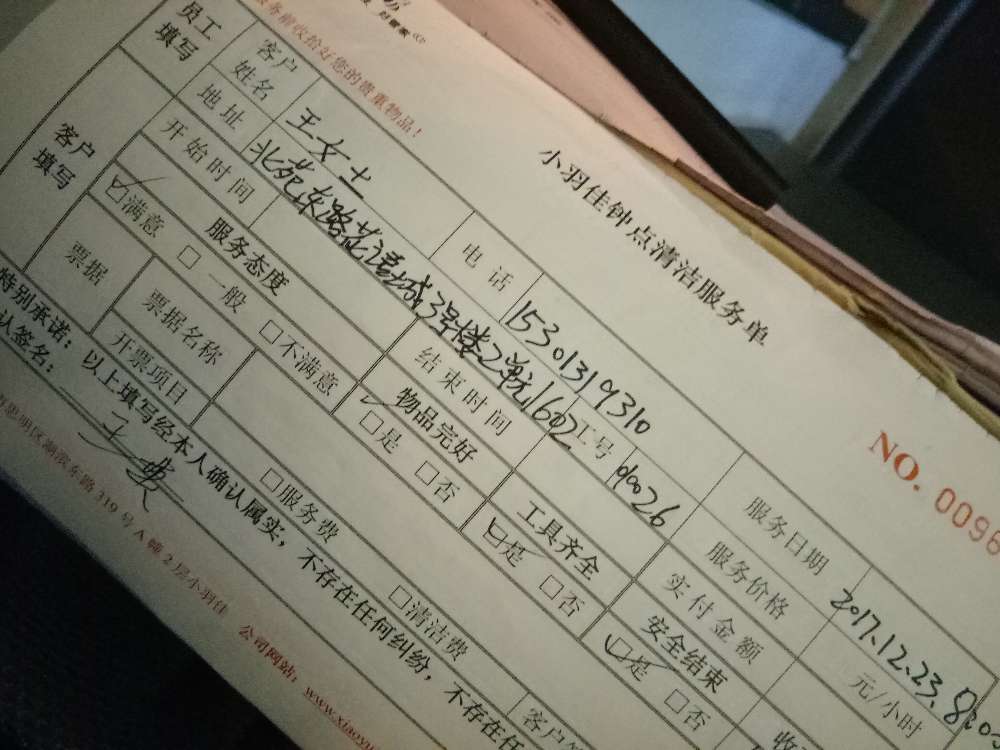 小羽佳钟点清洁服务单
NO. 0096
服务前收拾好您的贵重物品！
员工填写 客户姓名 王女士 电话 15301319310 服务日期 2017.12.23. 8:00
地址 北苑东路花语城3号楼2单元1602 工号 服务价格 元/小时
开始时间 结束时间 实付金额
客户填写 服务态度 物品完好 工具齐全 安全结束
☑满意 □一般 □不满意 ☑是 □否 ☑是 □否 ☑是 □否
票据 票据名称
开票项目 □服务费 □清洁费
特别承诺：以上填写经本人确认属实，不存在任何纠纷，不存在任
认签名： 客户
思明区湖滨东路319号A幢2层小羽佳 公司网站：www.xiaoyu